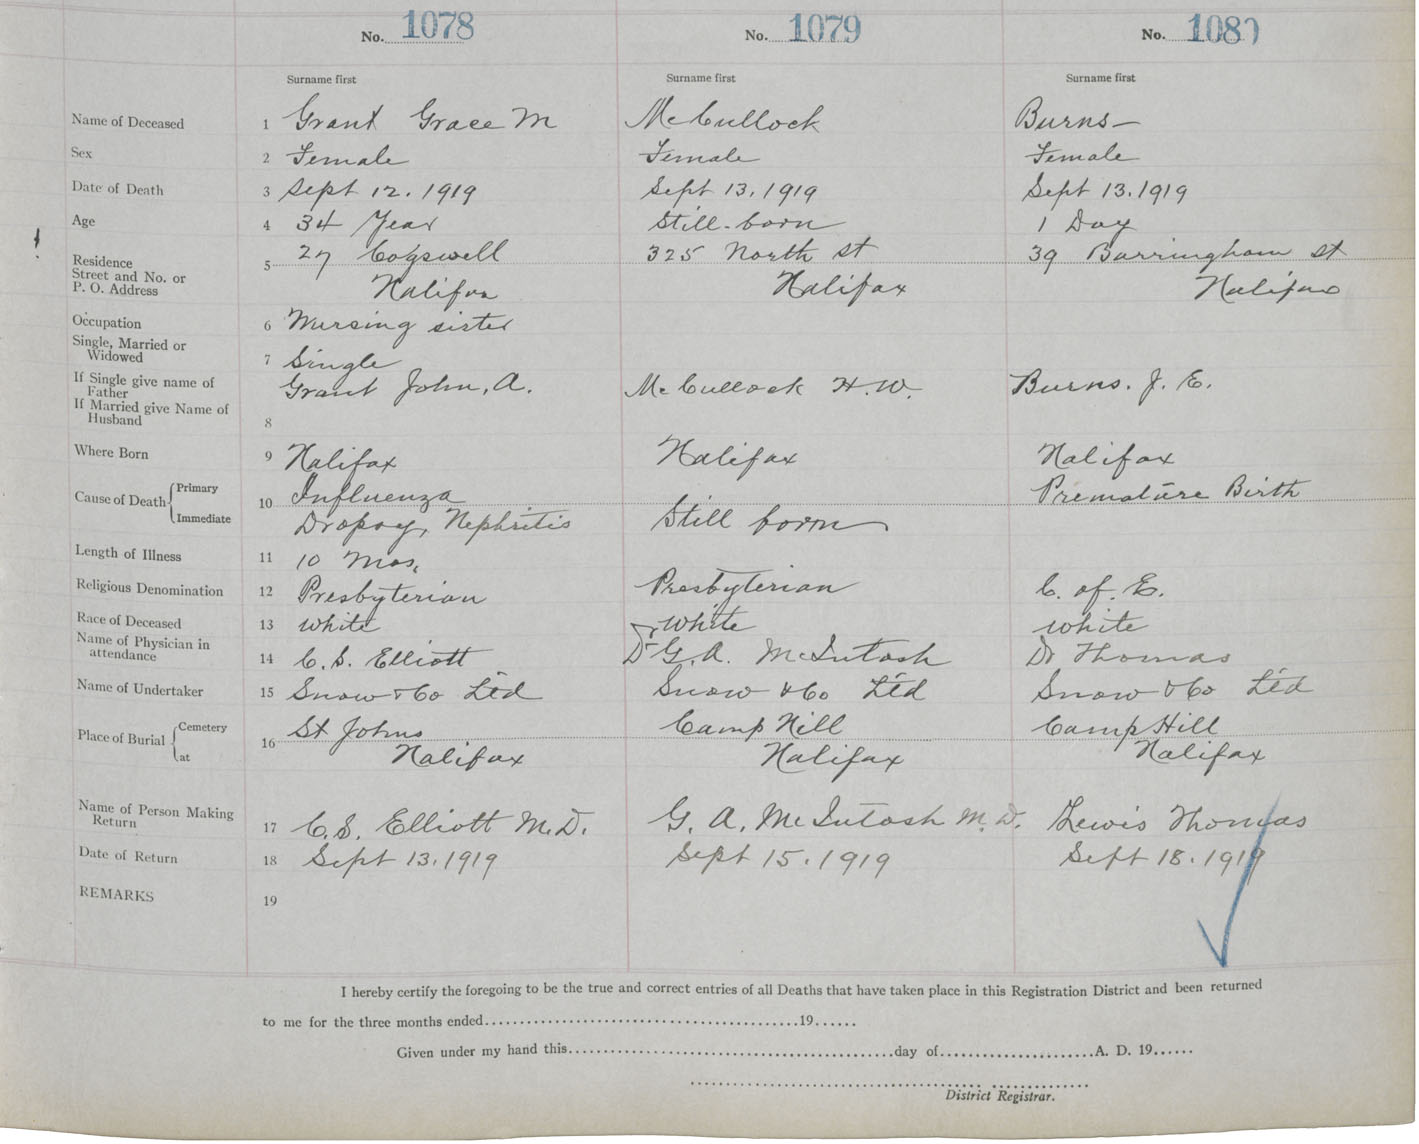 No. 1078 No. 1079 No. 1080
Surname first Surname first Surname first
Name of Deceased 1 Grant Grace M McCullock Burns
Sex 2 Female Female Female
Date of Death 3 Sept 12. 1919 Sept 13, 1919 Sept 13. 1919
Age 4 34 Year Still-born 1 Day
Residence 5 27 Cogswell 325 North St 39 Barringham St
Street and No. or
P. O. Address Halifax Halifax Halifax
Occupation 6 Nursing sister
Single, Married or
Widowed 7 Single
If Single give name of
Father Grant John, A. McCullock H.W. Burns. J. E.
If Married give Name of
Husband 8
Where Born 9 Halifax Halifax Halifax
Cause of Death Primary 10 Influenza Premature Birth
Immediate Dropsy, Nephritis Still born
Length of Illness 11 10 Mos.
Religious Denomination 12 Presbyterian Presbyterian C. of. E.
Race of Deceased 13 White White White
Name of Physician in
attendance 14 C. S. Elliott Dr G. A. McIntosh Dr Thomas
Name of Undertaker 15 Snow & Co Ltd Snow & Co Ltd Snow & Co Ltd
Place of Burial Cemetery 16 St Johns Camp Hill Camp Hill
at Halifax Halifax Halifax
Name of Person Making
Return 17 C. S. Elliott M.D. G. A. McIntosh M.D. Lewis Thomas
Date of Return 18 Sept 13. 1919 Sept 15. 1919 Sept 18. 1919
REMARKS 19
I hereby certify the foregoing to be the true and correct entries of all Deaths that have taken place in this Registration District and been returned
to me for the three months ended 19......
Given under my hand this day of A. D. 19......
District Registrar.